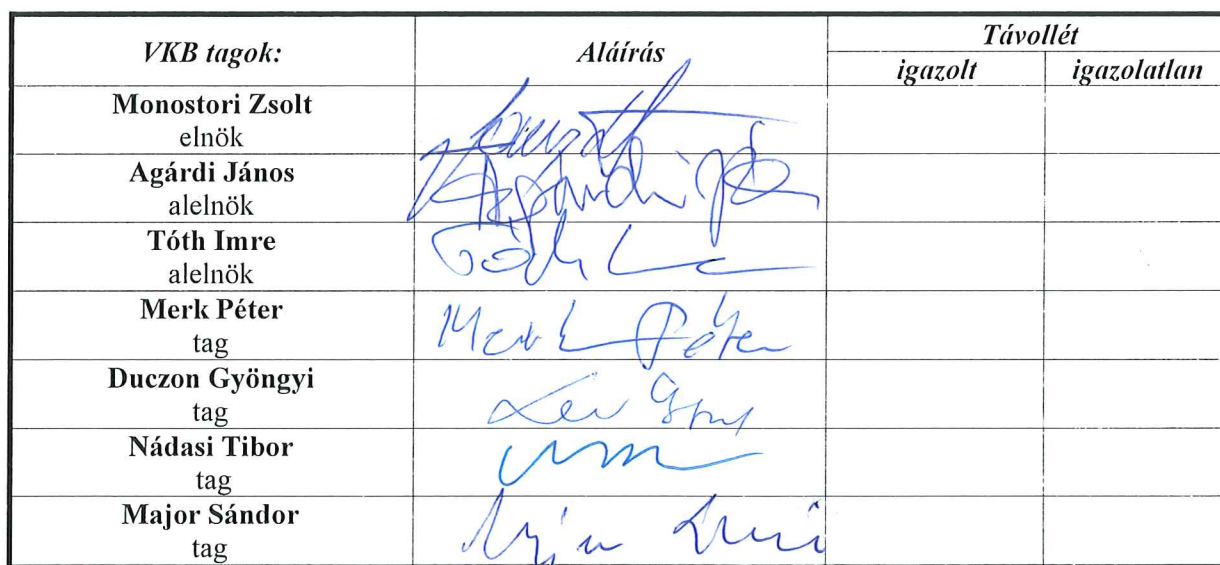 VKB tagok: Aláírás Távollét
igazolt igazolatlan
Monostori Zsolt
elnök
Agárdi János
alelnök
Tóth Imre
alelnök
Merk Péter Merk Péter
tag
Duczon Gyöngyi
tag
Nádasi Tibor
tag
Major Sándor
tag